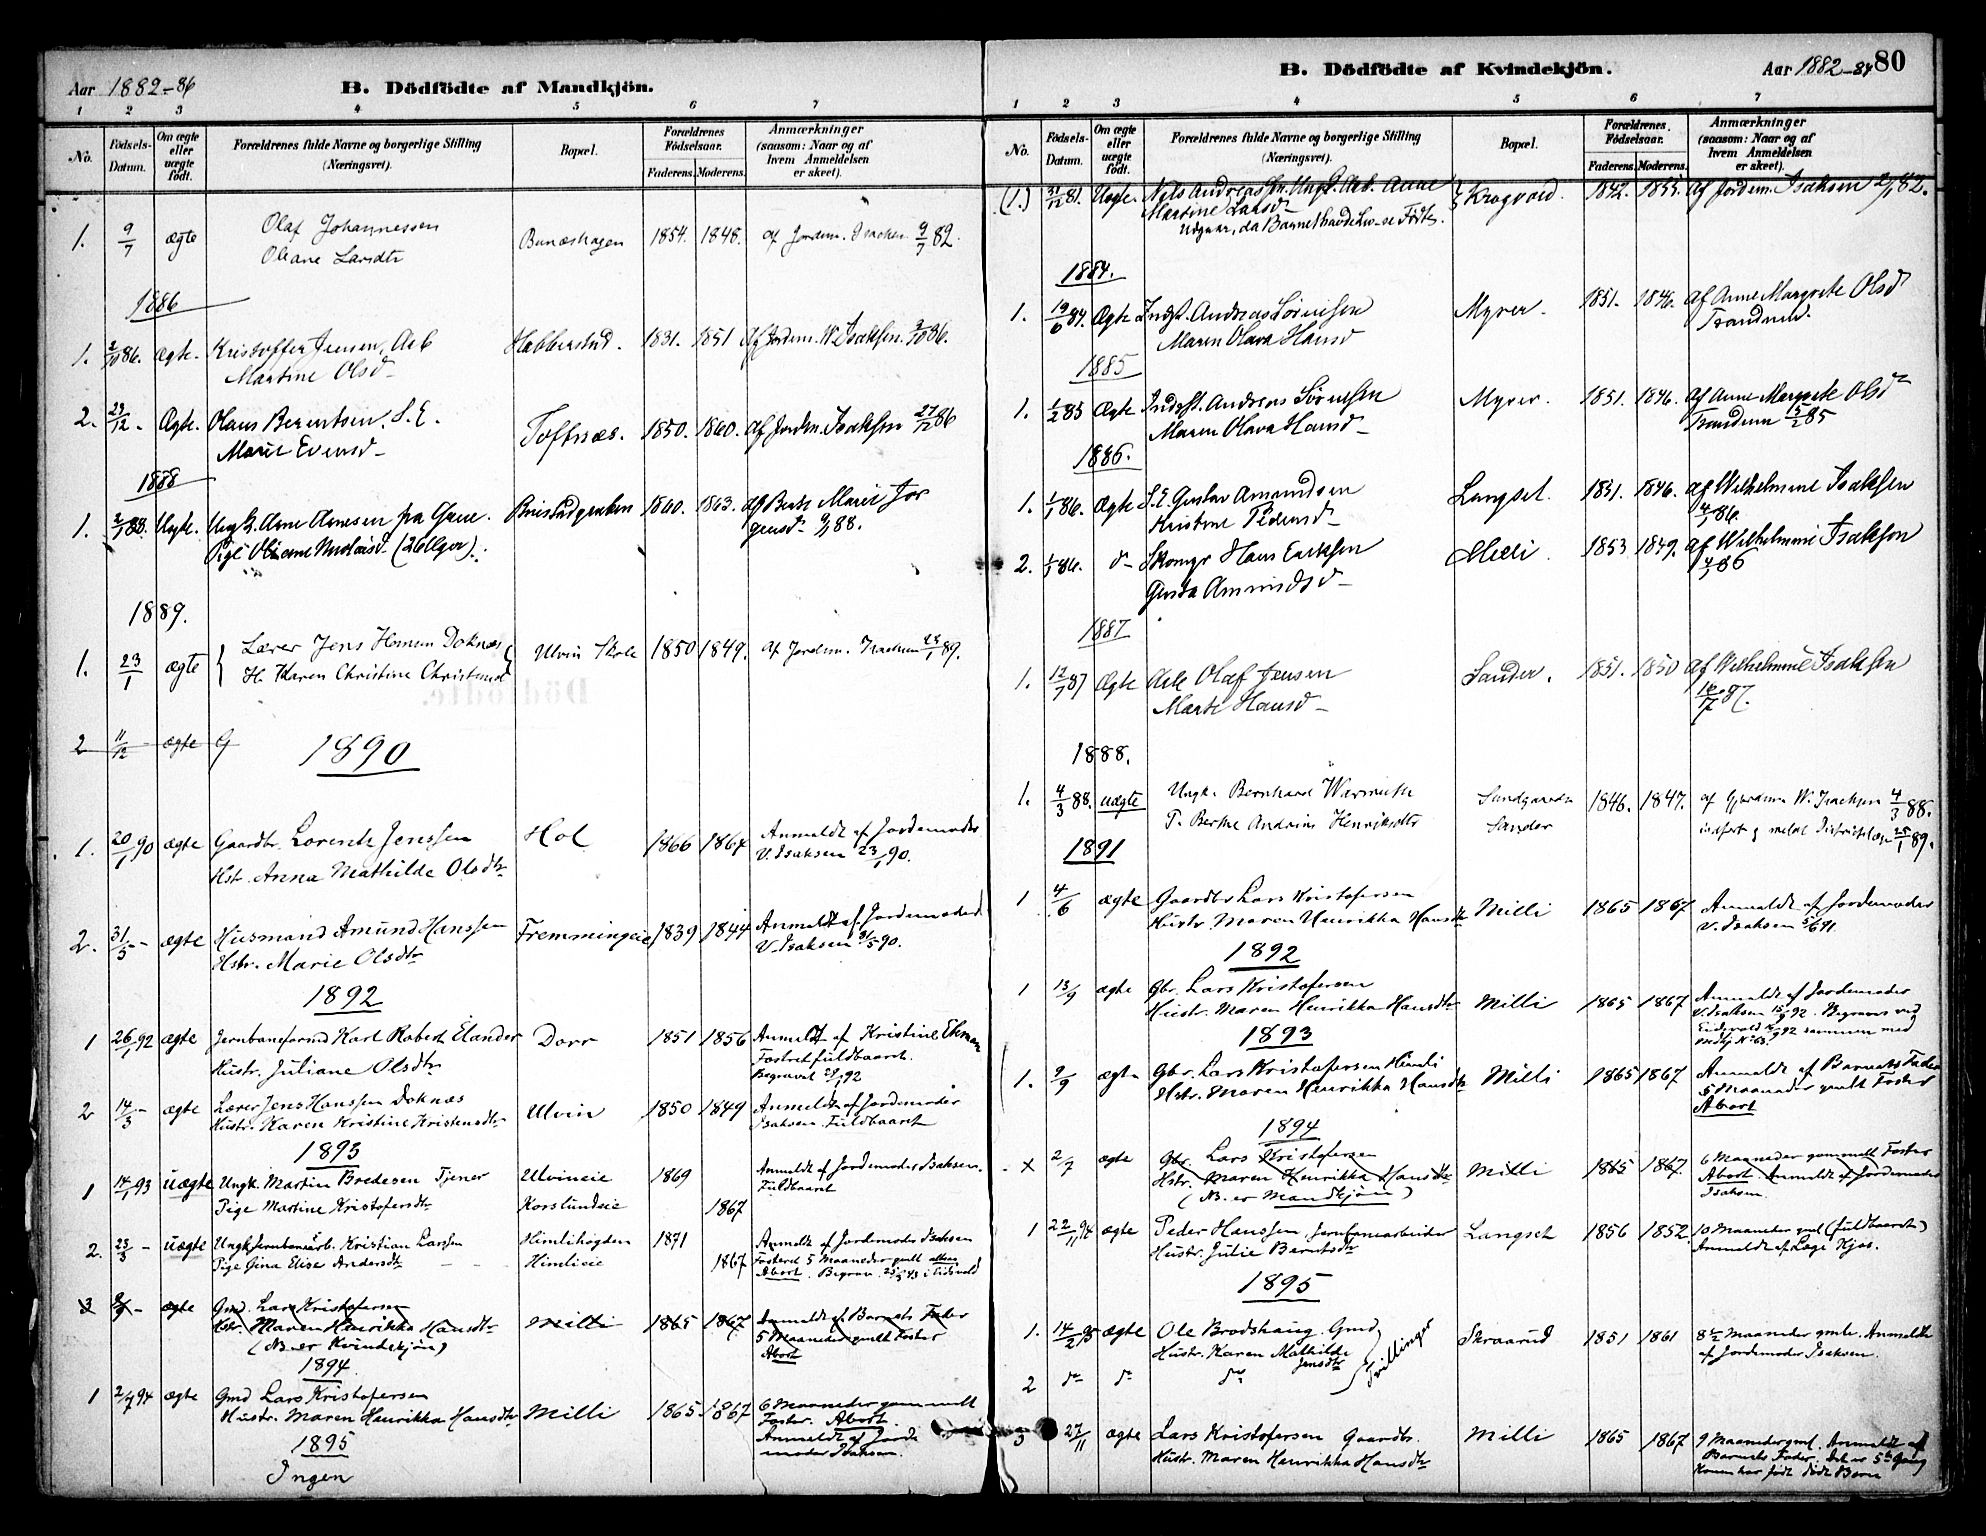 Aar 1882-86
B. Dödfödte af Mandkjön.
1 2 3 4 5 6 7
No. Födsels-Datum. Om ægte eller uægte født. Forældrenes fulde Navne og borgerlige Stilling (Næringsvei). Bopæl. Forældrenes Födselsaar. Faderens. Moderens. Anmærkninger (saasom: Naar og af hvem Anmeldelsen er skeet).
1. 9/7 ægte Olaf Johannessen 1854. 1848. af Jordem. Isaksen 9/7 82.
Oleane Larsdtr
1886
1. 2/10 86. Ægte. Kristoffer Jensen, Arb Habberstad. 1831. 1851 Af Jordem. W. Isaksen. 2/10 86.
Martine Olsd
2. 23/12 - Ægte. Olaus Berentsen. S.E. Toftnæs. 1850. 1860. af Jordm. Isaksen 27/12 86
Marie Evensd
1888
1. 2/1 88. Uægte. Ungk. Arne Arnesen fra Grue. 1860. 1863. af Berte Marie Jør
Pige Oliane (26 Uger). gensd 9/1 88.
1889.
1. 23/1 ægte Lærer Jens Hansen Doknæs Ulvin Skole 1850 1849. af Jordm. Isaksen 23/1 89.
H. Karen Christine Christensd
2 11/12 ægte G
1890
1. 20/1 90 ægte Gaardbr. Lorentz Jenssen Hol 1866 1864 Anmeldt af Jordemoder
Hstr. Anna Mathilde Olsdtr V. Isaksen 23/1 90.
2. 31/5 - ægte Husmand Amund Hanssen Fremmingeie 1839 1844 Anmeldt af Jordemoder
Hstr. Marie Olsdtr V. Isaksen 31/5 90.
1892
1 26/1 92 ægte Jernbaneformd Karl Robert Elander Dorr 1851 1856 Anmeldt af Kristine Ekman
Hustr. Juliane Olsdtr Fostret fuldbaaret.
Begravet 29/1 92
2 14/3 - ægte Lærer Jens Hanssen Doknæs Ulvin 1850 1849 Anmeldt af Jordemoder
Hustr. Karen Kristine Kristensdtr Isaksen. Fuldbaaret
1893
1 14/1 93 uægte Ungk. Martin Bredesen Tjener Ulvineie 1869 Anmeldt af Jordemoder Isaksen.
Pige Martine Kristofersdtr Korslundeie 1867 Fuldbaaret
2. 23/3 - uægte Ungk Jernbanearb. Kristian Larssen Himlehögden 1871 Anmeldt af Jordemoder Isaksen
Pige Gina Elise Andersdtr Himlieie 1867 Fosteret 5 Maaneder gmlt
Abort. Begrav. i Eidsvold
3 9/9 - ægte Gmd. Lars Kristofersen Milli 1865 1867 Anmeldt af Barnets Fader
Hstr. Maren Henrikka Hansdtr 5 Maaneder gmlt Foster
(NB. er Kvindekjön) Abort
1894
1 2/7 94 ægte Gmd Lars Kristofersen Milli 1865 1867 6 Maaneder gammelt
Hustr. Maren Henrikka Hansdtr Foster. Abort.
Anmeldt af Jorde
moder Isaksen.
1895
Ingen
B. Dödfödte af Kvindekjön.
Aar 1882-87 80
1 2 3 4 5 6 7
No. Födsels-Datum. Om ægte eller uægte födt. Forældrenes fulde Navne og borgerlige Stilling (Næringsvei). Bopæl. Forældrenes Födselsaar. Faderens. Moderens. Anmærkninger (saasom: Naar og af hvem Anmeldelsen er skeet).
(1.) 31/12 81. Uægte. Nils Andreas Arb. Anne Krogvold. 1842. 1855. af Jordem. Isaksen 2/1 82.
Martine Larsd
Udgaar, da Barnet havde Liv
1884.
1. 19/6 84. Ægte Indst. Andreas Sörensen Myrer. 1851. 1846. af Anne Margrete Olsd
Maren Olava Hansd Trandum.
1885
1. 1/2 85 Ægte Inderst. Andreas Sörensen Myrer. 1851. 1846. af Anne Margrete Olsd
Maren Olava Hansd Trandum 15/2 85
1886.
1. 1/1 86. Ægte S.E. Gustav Amundsen Langset. 1851. 1846. af Wilhelmine Isaksen
Kristine Pedersd 4/1 86.
2. 1/1 86. d Skomgr Hans Eriksen Melli. 1853 1849. af Wilhelmine Isaksen
Amundsd 4/1 86
1887
1. 12/7 87 Ægte Arb Olaf Jensen Sander. 1851. 1850 af Wilhelmine Isaksen
Marte Hansd 16/7 87.
1888.
1. 4/3 88. uægte Ungk. Bernhard Warmuth 1846. 1847. af Jordem W. Isaksen 4/3 88.
P. Berthe Andrine Henriksdtr Sander indført g. meldt 25/1 89.
1891
1 4/6 ægte Gaardbr Lars Kristofersen Milli 1865 1867 Anmeldt af Jordemoder
Hustr. Maren Henrikka Hansdtr V. Isaksen 5/6 91.
1892
1 13/9 ægte Gbr. Lars Kristofersen Milli 1865 1867 Anmeldt af Jordemoder
Hustr. Maren Henrikka Hansdtr V. Isaksen 15/9 92. Begraves ved
Eidsvold 92 sammen med
No 63.
1893
1. 9/9 ægte Gbr. Lars Kristofersen Himli Milli 1865 1867 Anmeldt af Barnets Fader
Hstr. Maren Henrikka Hansdtr 5 Maaneder gmlt Foster
Abort
1894
x 2/7 ægte Gbr. Lars Kristofersen Milli 1865 1867. 6 Maaneder gammelt Foster
Hstr. Maren Henrikka Hansdtr Abort. Anmeldt af Jordemoder
(NB. er Mandkjön) Isaksen.
1 22/11 94 ægte Peder Hanssen Jernbanearbeider Langset 1856 1852 10 Maaneder gml (fuldbaaret)
Hustr. Julie Berntsdtr Anmeldt af Læge Kjos.
1895
1. 14/2 95 ægte Ole Brodshaug. Gmd Skraarud 1851 1861 8½ Maaneder gmlt. Anmeldt
Hustr. Karen Mathilde af Jordemoder Isaksen.
Jensdtr
Tvillinger
2 do do do
3 27/11 ægte Lars Kristofersen Gaardbr. Milli 1865 1867 9 Maaneder gml. Anmeldt af
Hustr. Maren Henrikka Hansdtr Barnets Fader. Det er 5te Gang
Konen har födt dödt Barn